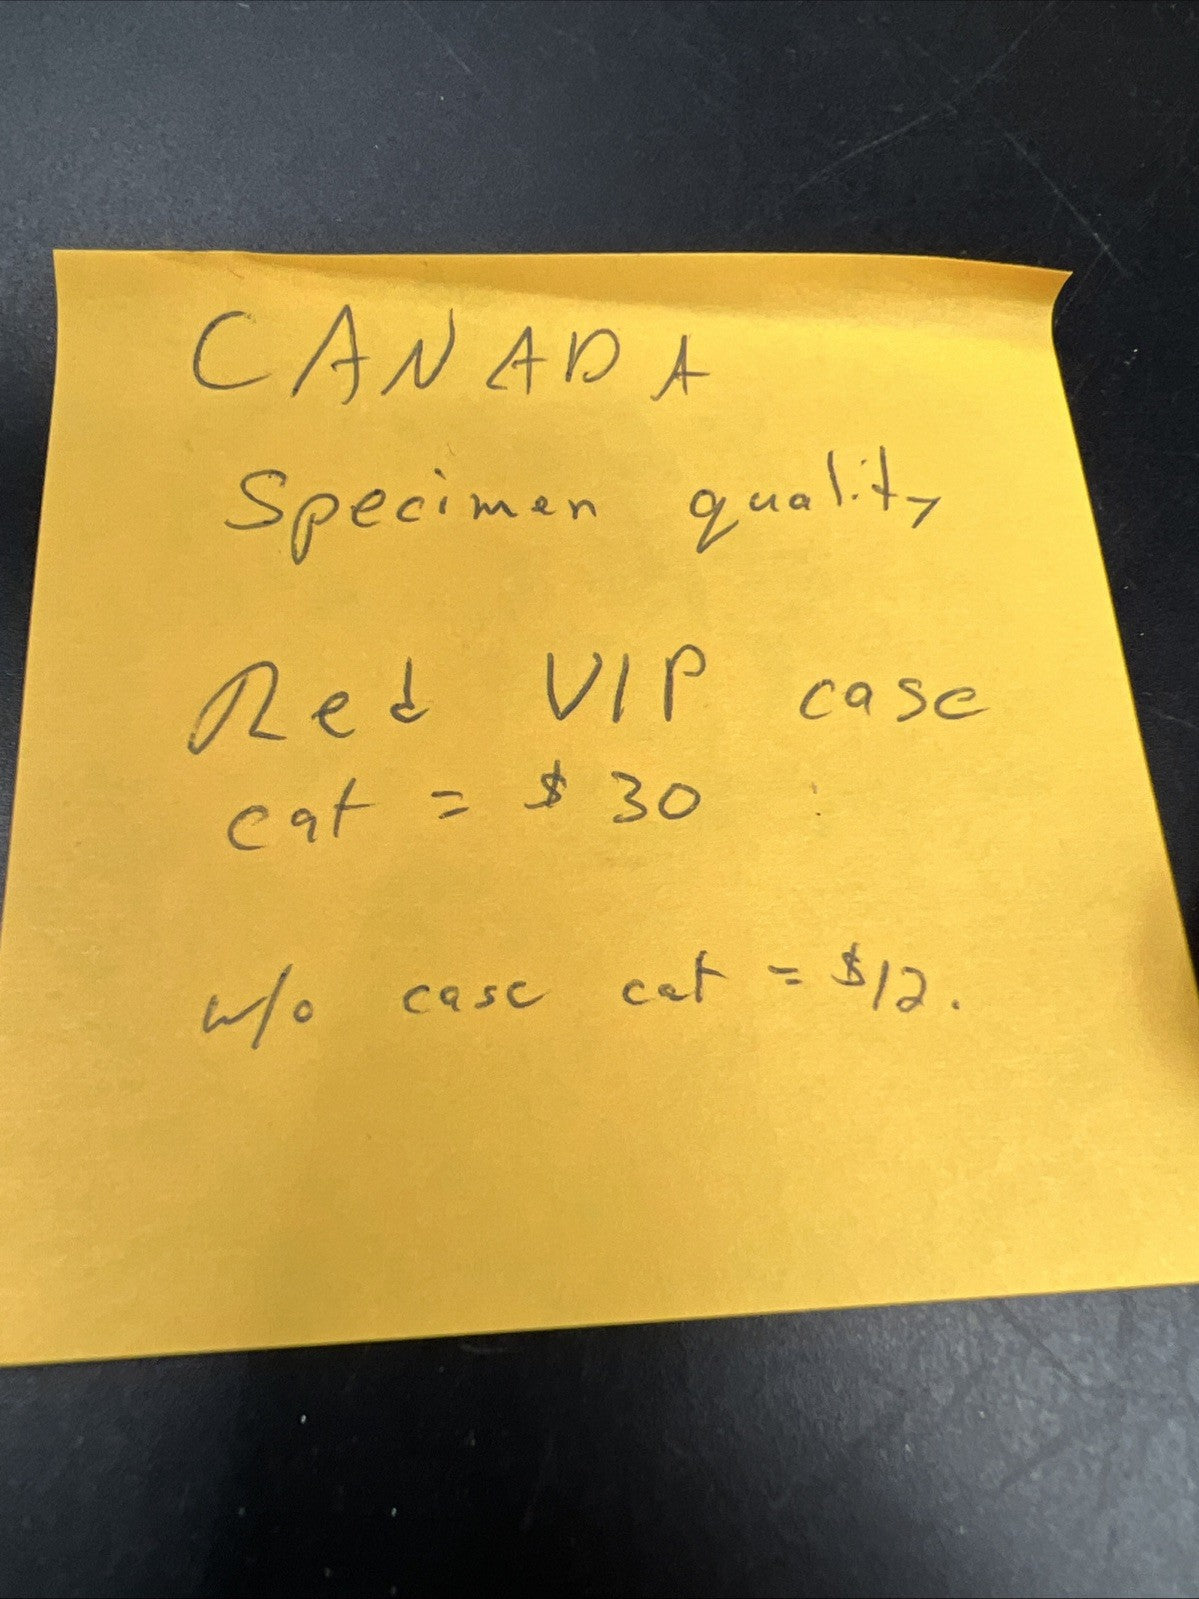 CANADA
Specimen quality
Red VIP case
cat = $30
w/o case cat = $12.